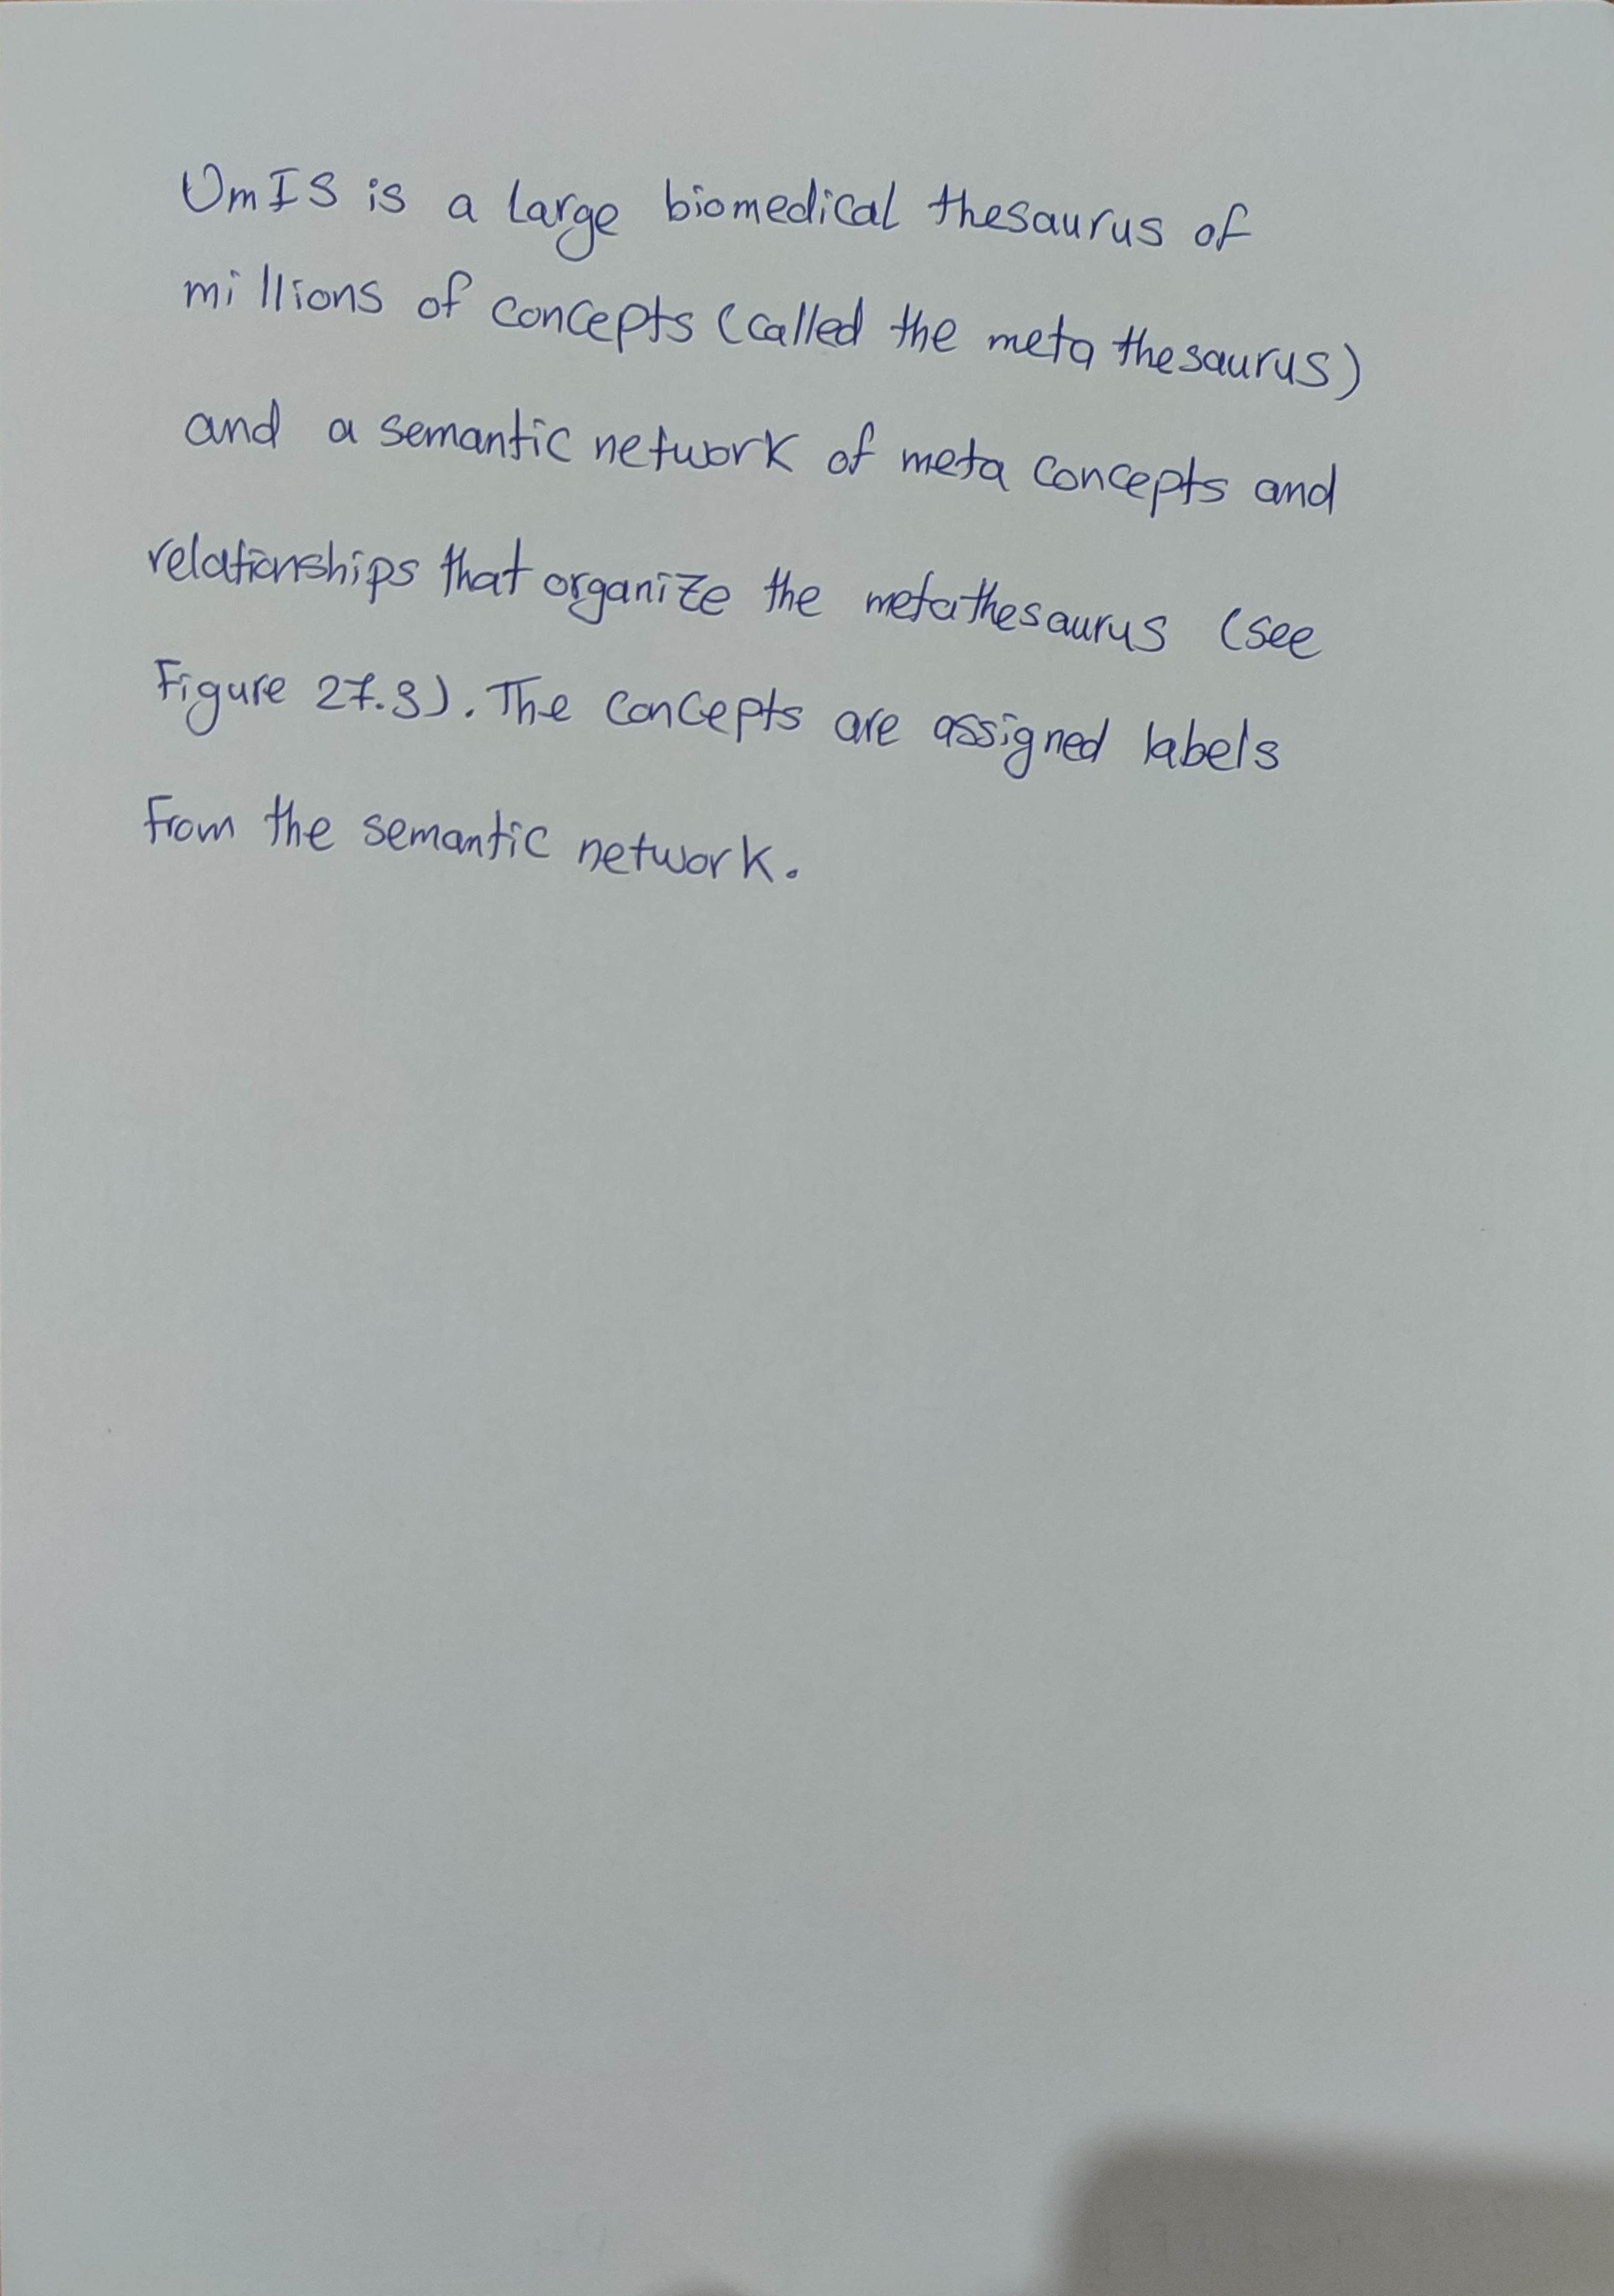 UmIS is a large biomedical thesaurus of
millions of concepts (called the meta thesaurus)
and a semantic network of meta concepts and
relationships that organize the metathesaurus (see
Figure 27.3). The concepts are assigned labels
from the semantic network.